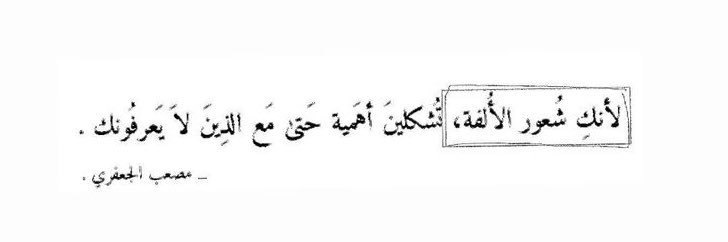 لأنكِ شُعور الأُلفة، تُشكلينَ أهَمية حَتىٰ مَع الذِينَ لاَ يَعرفُونك .
_ مصعب الجعفري .